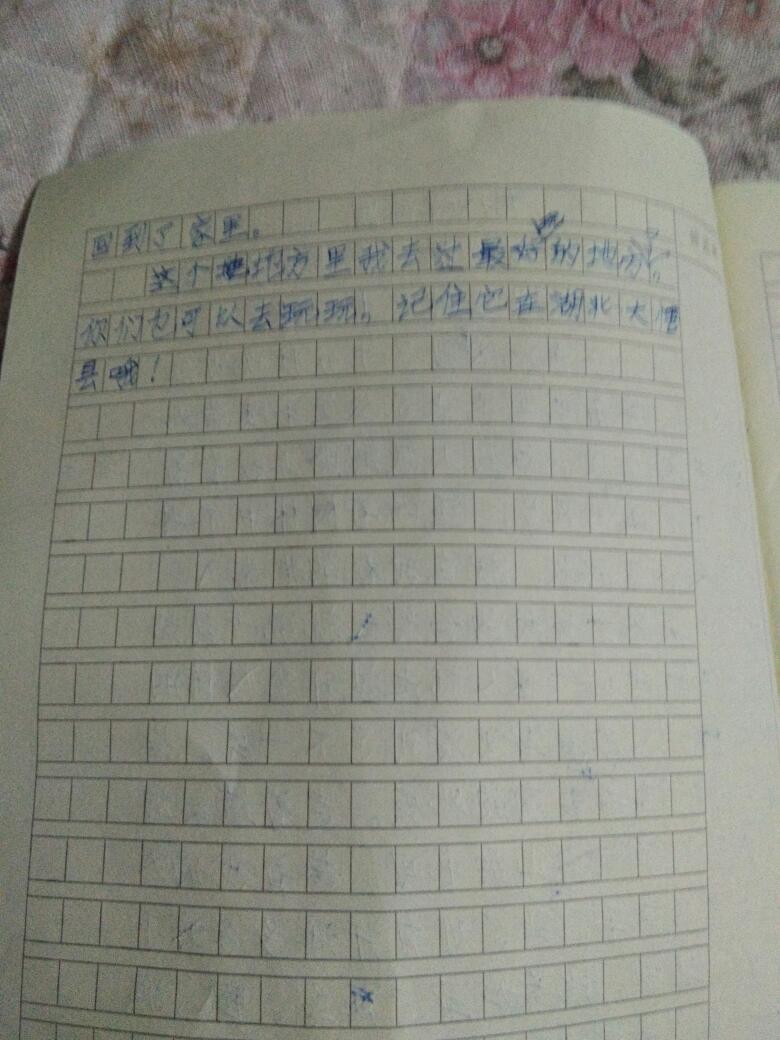 回到了家里。
这个地方里我去过最好的地方。
你们也可以去玩玩，记住它在湖北大悟
县哦！